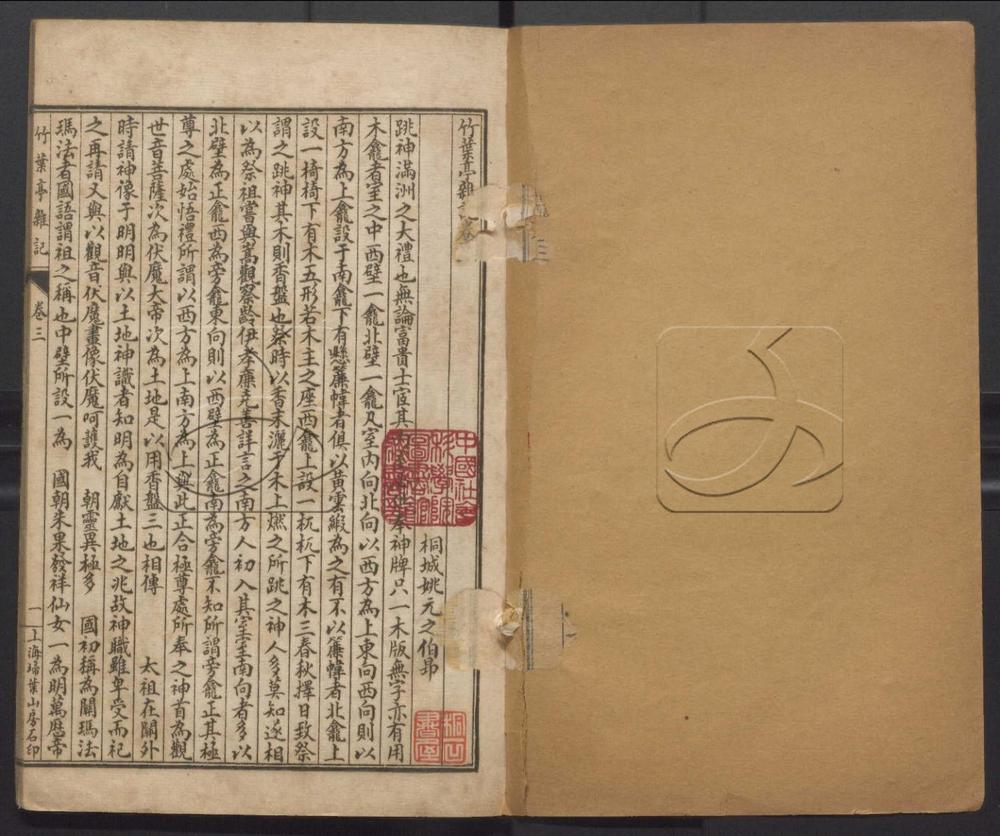 竹葉亭雜記卷三
桐城姚元之伯昻
跳神滿洲之大禮也無論富貴士宦其內奉神牌只一木版無字亦有用
木龕者室之中西壁一龕北壁一龕凡室內向北向以西方為上東向西向則以
南方為上龕設于南龕下有懸簾幃者俱以黃雲緞為之有不以簾幃者北龕上
設一椅椅下有木五形若木主之座西龕上設一杌杌下有木三春秋擇日致祭
謂之跳神其木則香盤也祭時以香末灑于木上燃之所跳之神人多莫知遂相
以為祭祖嘗與嵩觀察齡伊孝廉克善詳言之南方人初入其室室南向者多以
北壁為正龕西為旁龕東向則以西壁為正龕南為旁龕不知所謂旁龕正其極
尊之處始悟禮所謂以西方為上南方為上與此正合極尊處所奉之神首為觀
世音菩薩次為伏魔大帝次為土地是以用香盤三也相傳 太祖在關外
時請神像于明明與以土地神識者知明為自獻土地之兆故神職雖卑受而祀
之再請又與以觀音伏魔畫像伏魔呵護我 朝靈異極多 國初稱為關瑪法
瑪法者國語謂祖之稱也中壁所設一為 國朝朱果發祥仙女一為明萬厯帝
竹葉亭雜記
卷三
一
上海埽葉山房石印
中國社會科學院圖書館
桐云書屋